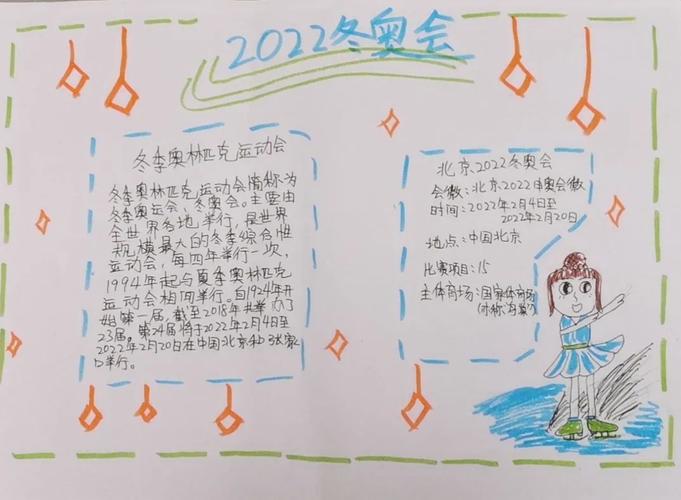 2022冬奥会
冬季奥林匹克运动会
冬季奥林匹克运动会简称为
冬季奥运会、冬奥会。主要由
全世界各地举行,是世界
规模最大的冬季综合性
运动会,每四年举行一次,
1994年起与夏季奥林匹克
运动会相间举行。自1924年开
始第一届,截至2018年共举办了
23届。第24届将于2022年2月4日至
2022年2月20日在中国北京和张家
口举行。
北京2022冬奥会
会徽:北京2022申奥会徽
时间:2022年2月4日至
2022年2月20日
地点:中国北京
比赛项目:15
主体育场:国家体育场